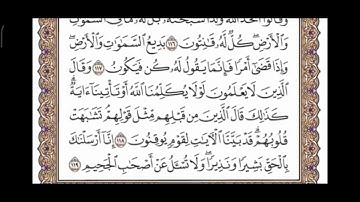 وَقَالُوا۟ ٱتَّخَذَ ٱللَّهُ وَلَدًا سُبْحَٰنَهُۥ بَل لَّهُۥ مَا فِى ٱلسَّمَٰوَٰتِ
وَٱلْأَرْضِ كُلٌّ لَّهُۥ قَٰنِتُونَ ١١٦ بَدِيعُ ٱلسَّمَٰوَٰتِ وَٱلْأَرْضِ
وَإِذَا قَضَىٰٓ أَمْرًا فَإِنَّمَا يَقُولُ لَهُۥ كُن فَيَكُونُ ١١٧ وَقَالَ
ٱلَّذِينَ لَا يَعْلَمُونَ لَوْلَا يُكَلِّمُنَا ٱللَّهُ أَوْ تَأْتِينَآ ءَايَةٌ
كَذَٰلِكَ قَالَ ٱلَّذِينَ مِن قَبْلِهِم مِّثْلَ قَوْلِهِمْ تَشَٰبَهَتْ
قُلُوبُهُمْ قَدْ بَيَّنَّا ٱلْءَايَٰتِ لِقَوْمٍ يُوقِنُونَ ١١٨ إِنَّآ أَرْسَلْنَٰكَ
بِٱلْحَقِّ بَشِيرًا وَنَذِيرًا وَلَا تُسْـَٔلُ عَنْ أَصْحَٰبِ ٱلْجَحِيمِ ١١٩